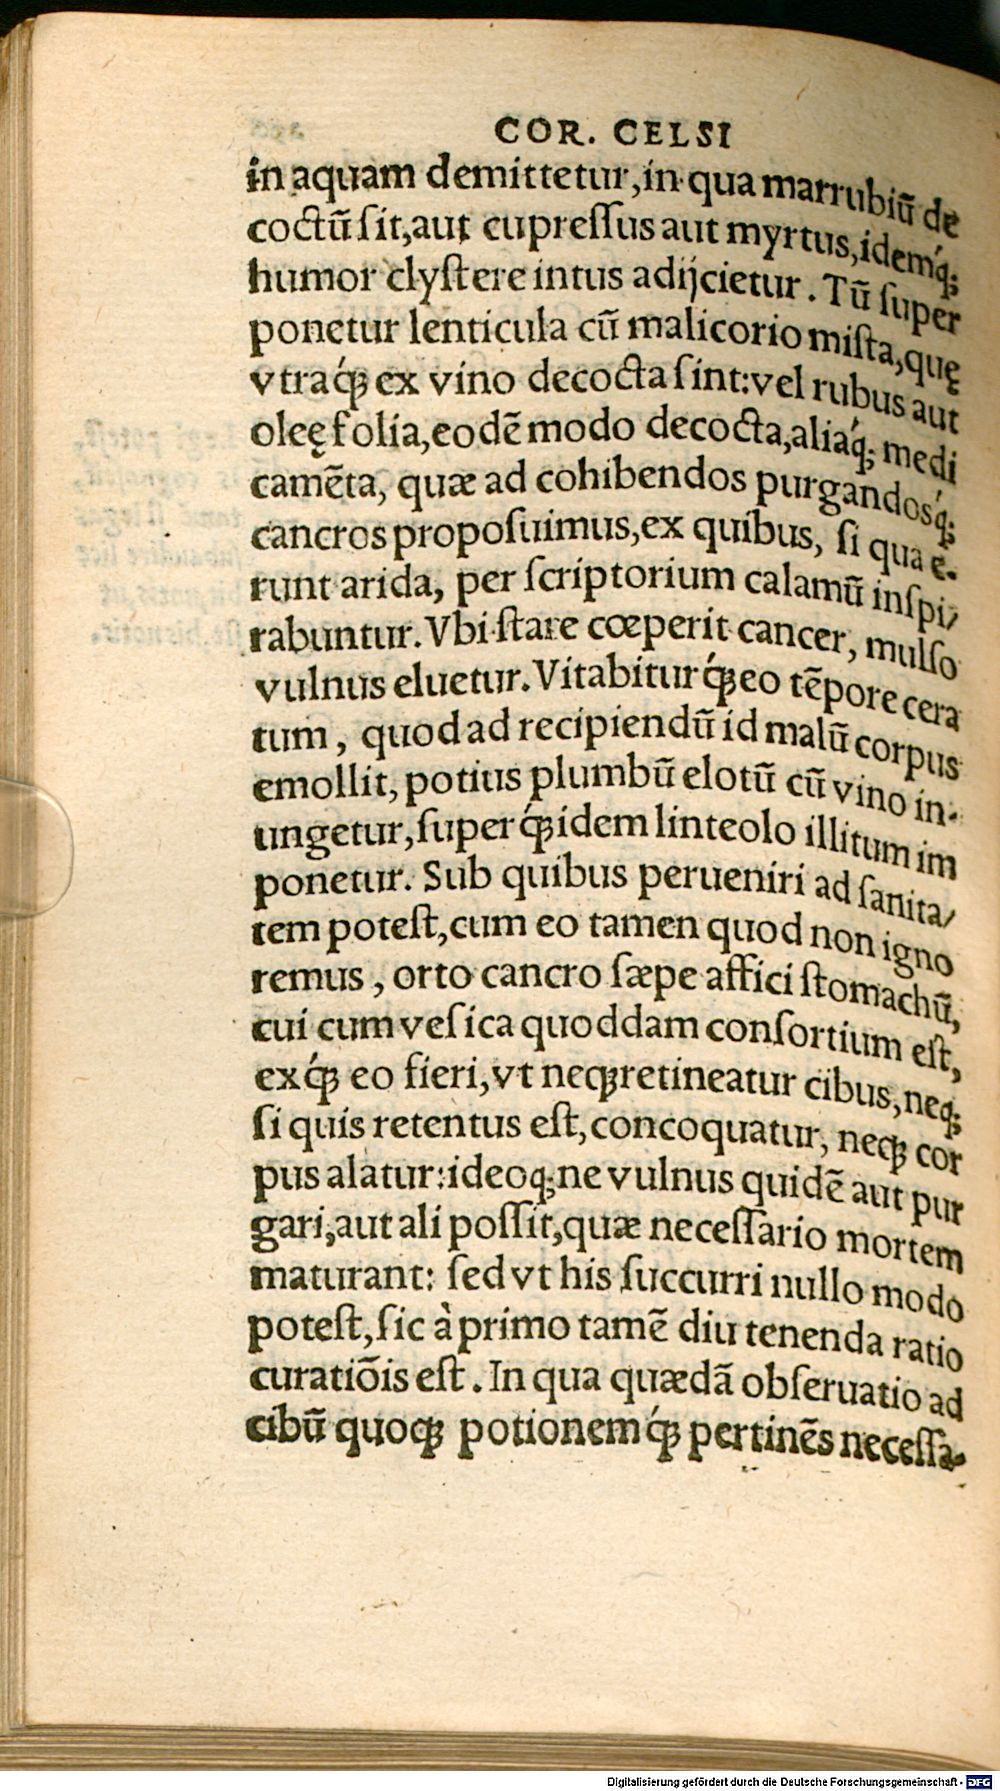 COR. CELSI
in aquam demittetur, in qua marrubiū de
coctū ſit, aut cupreſſus aut myrtus, idemq́;
humor clyſtere intus adijcietur. Tū ſuper
ponetur lenticula cū malicorio miſta, quę
vtraq́; ex vino decocta ſint: vel rubus aut
oleę folia, eodē modo decocta, aliaq́; medi
camēta, quæ ad cohibendos purgandosq́;
cancros propoſuimus, ex quibus, ſi qua e-
runt arida, per ſcriptorium calamū inſpi/
rabuntur. Vbi ſtare cœperit cancer, mulſo
vulnus eluetur. Vitabiturq́; eo tēpore cera
tum, quod ad recipiendū id malū corpus
emollit, potius plumbū elotū cū vino in-
ungetur, ſuperq́; idem linteolo illitum im
ponetur. Sub quibus perueniri ad ſanita/
tem poteſt, cum eo tamen quod non igno
remus, orto cancro ſæpe affici ſtomachū,
cui cum veſica quoddam conſortium eſt,
exq́; eo fieri, vt neq; retineatur cibus, neq;
ſi quis retentus eſt, concoquatur, neq; cor
pus alatur: ideoq; ne vulnus quidē aut pur
gari, aut ali poſſit, quæ neceſſario mortem
maturant: ſed vt his ſuccurri nullo modo
poteſt, ſic à primo tamē diu tenenda ratio
curatiōis eſt. In qua quædā obſeruatio ad
cibū quoq; potionemq́; pertinēs neceſſa-
Digitalisierung gefördert durch die Deutsche Forschungsgemeinschaft - DFG